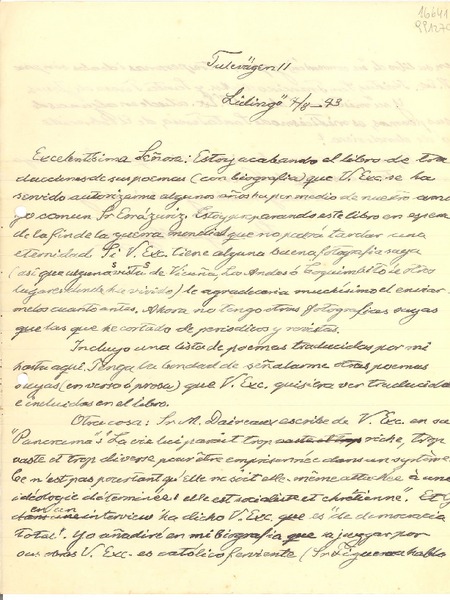 16641
991270
Tulevägen 11
Lidingö 7/8-43
Excelentísima Señora: Estoy acabando el libro de tra
ducciones de sus poemas (con biografía) que V. Exc. se ha
servido autorizarme algunos años ha por medio de nuestro ami
go comun Sr Errázuriz. Estoy preparando este libro en espera
de la fin de la guerra mondial que no podrá tardar una
eternidad. Si V. Exc. tiene alguna buena fotografia suya
(así que algunas vistas de Vicuña, los Andes ó Coquimbo ó de otros
lugares donde ha vivido) le agradecería muchísimo el enviar
melas cuanto antes. Ahora no tengo otras fotografias suyas
que las que he cortado de periodicos y revistas.
Incluyo una lista de poemas traducidas por mi
hasta aqui. Tenga la bondad de señalarme otras poemas
suyas (en verso ó prosa) que V. Exc. quisiera ver traducidas
é incluidas en el libro.
Otra cosa: Sr M. Daireaux escribe de V. Exc. en su
"Panorama": "La vie lui parait trop vaste et trop riche, trop
vaste et trop diverse pour être emprisonnée dans un système.
Ce n'est pas pourtant qu'elle ne soit elle-même attachée à une
idéologie déterminée: elle est socialiste et chrétienne". Et
en un
interview ha dicho V. Exc. que es "de democracia
total". Yo añadiré en mi biografia que a juzgar por
sus obras V. Exc. es católica ferviente (Sr Figueroa habla